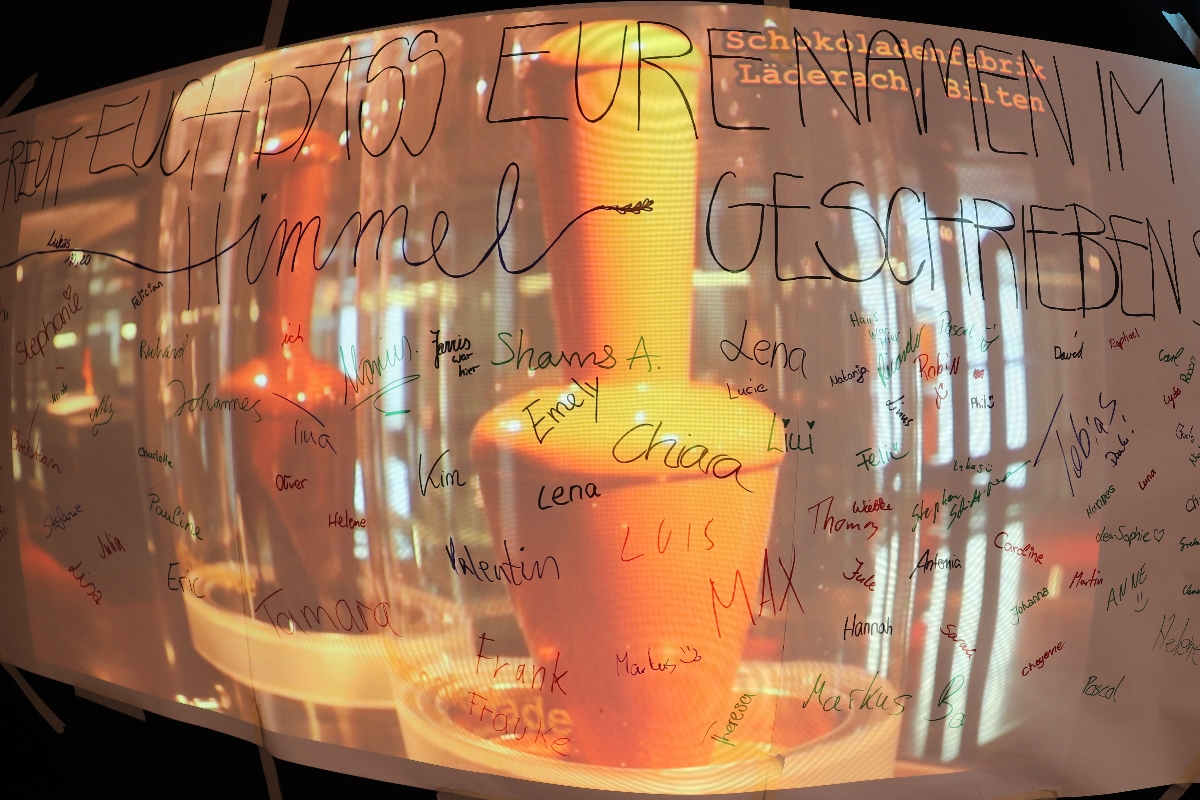 FREUT EUCH DASS EURE NAMEN IM
Himmel GESCHRIEBEN
Schokoladenfabrik
Läderach, Bilten
Lukas
Stephanie
Felician
Richard
ich
Marius.
Jannis
war
hier
Shams A.
Lena
Lucie
Hans
war
hier
Pascal
Ricardo
Robin
Natanja
Linus
Phil
David
Raphael
Carl
Noah
Willy
Johannes
Tina
Emely
Chiara
Livi
Felix
Lukas
Tobias
Christian
Charlotte
Oliver
Kim
Lena
Stefanie
Pauline
Helene
Thomas
Wiebke
Stephan
Hannes
Luna
Julia
Lisa
Eric
Valentin
LUIS
MAX
Jule
Antonia
Caroline
Lea Sophie
Martin
ANNE
Johanna
Tamara
Hannah
Sarah
Cheyenne
Frank
Markus
Frauke
ade
Theresa
Markus Ba
Pascal